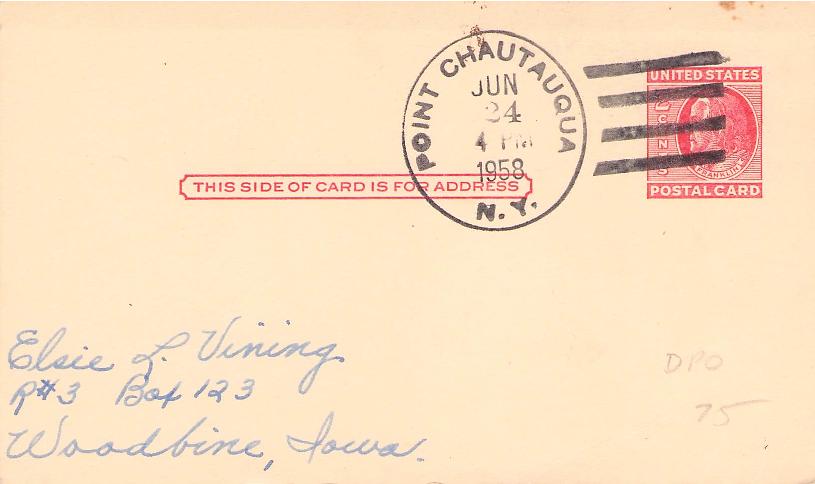 POINT CHAUTAUQUA
JUN
24
4 PM
1958
N.Y.
UNITED STATES
2 CENTS
FRANKLIN
POSTAL CARD
THIS SIDE OF CARD IS FOR ADDRESS
Elsie L. Vining
R#3 Box 123
Woodbine, Iowa.
DPO
75